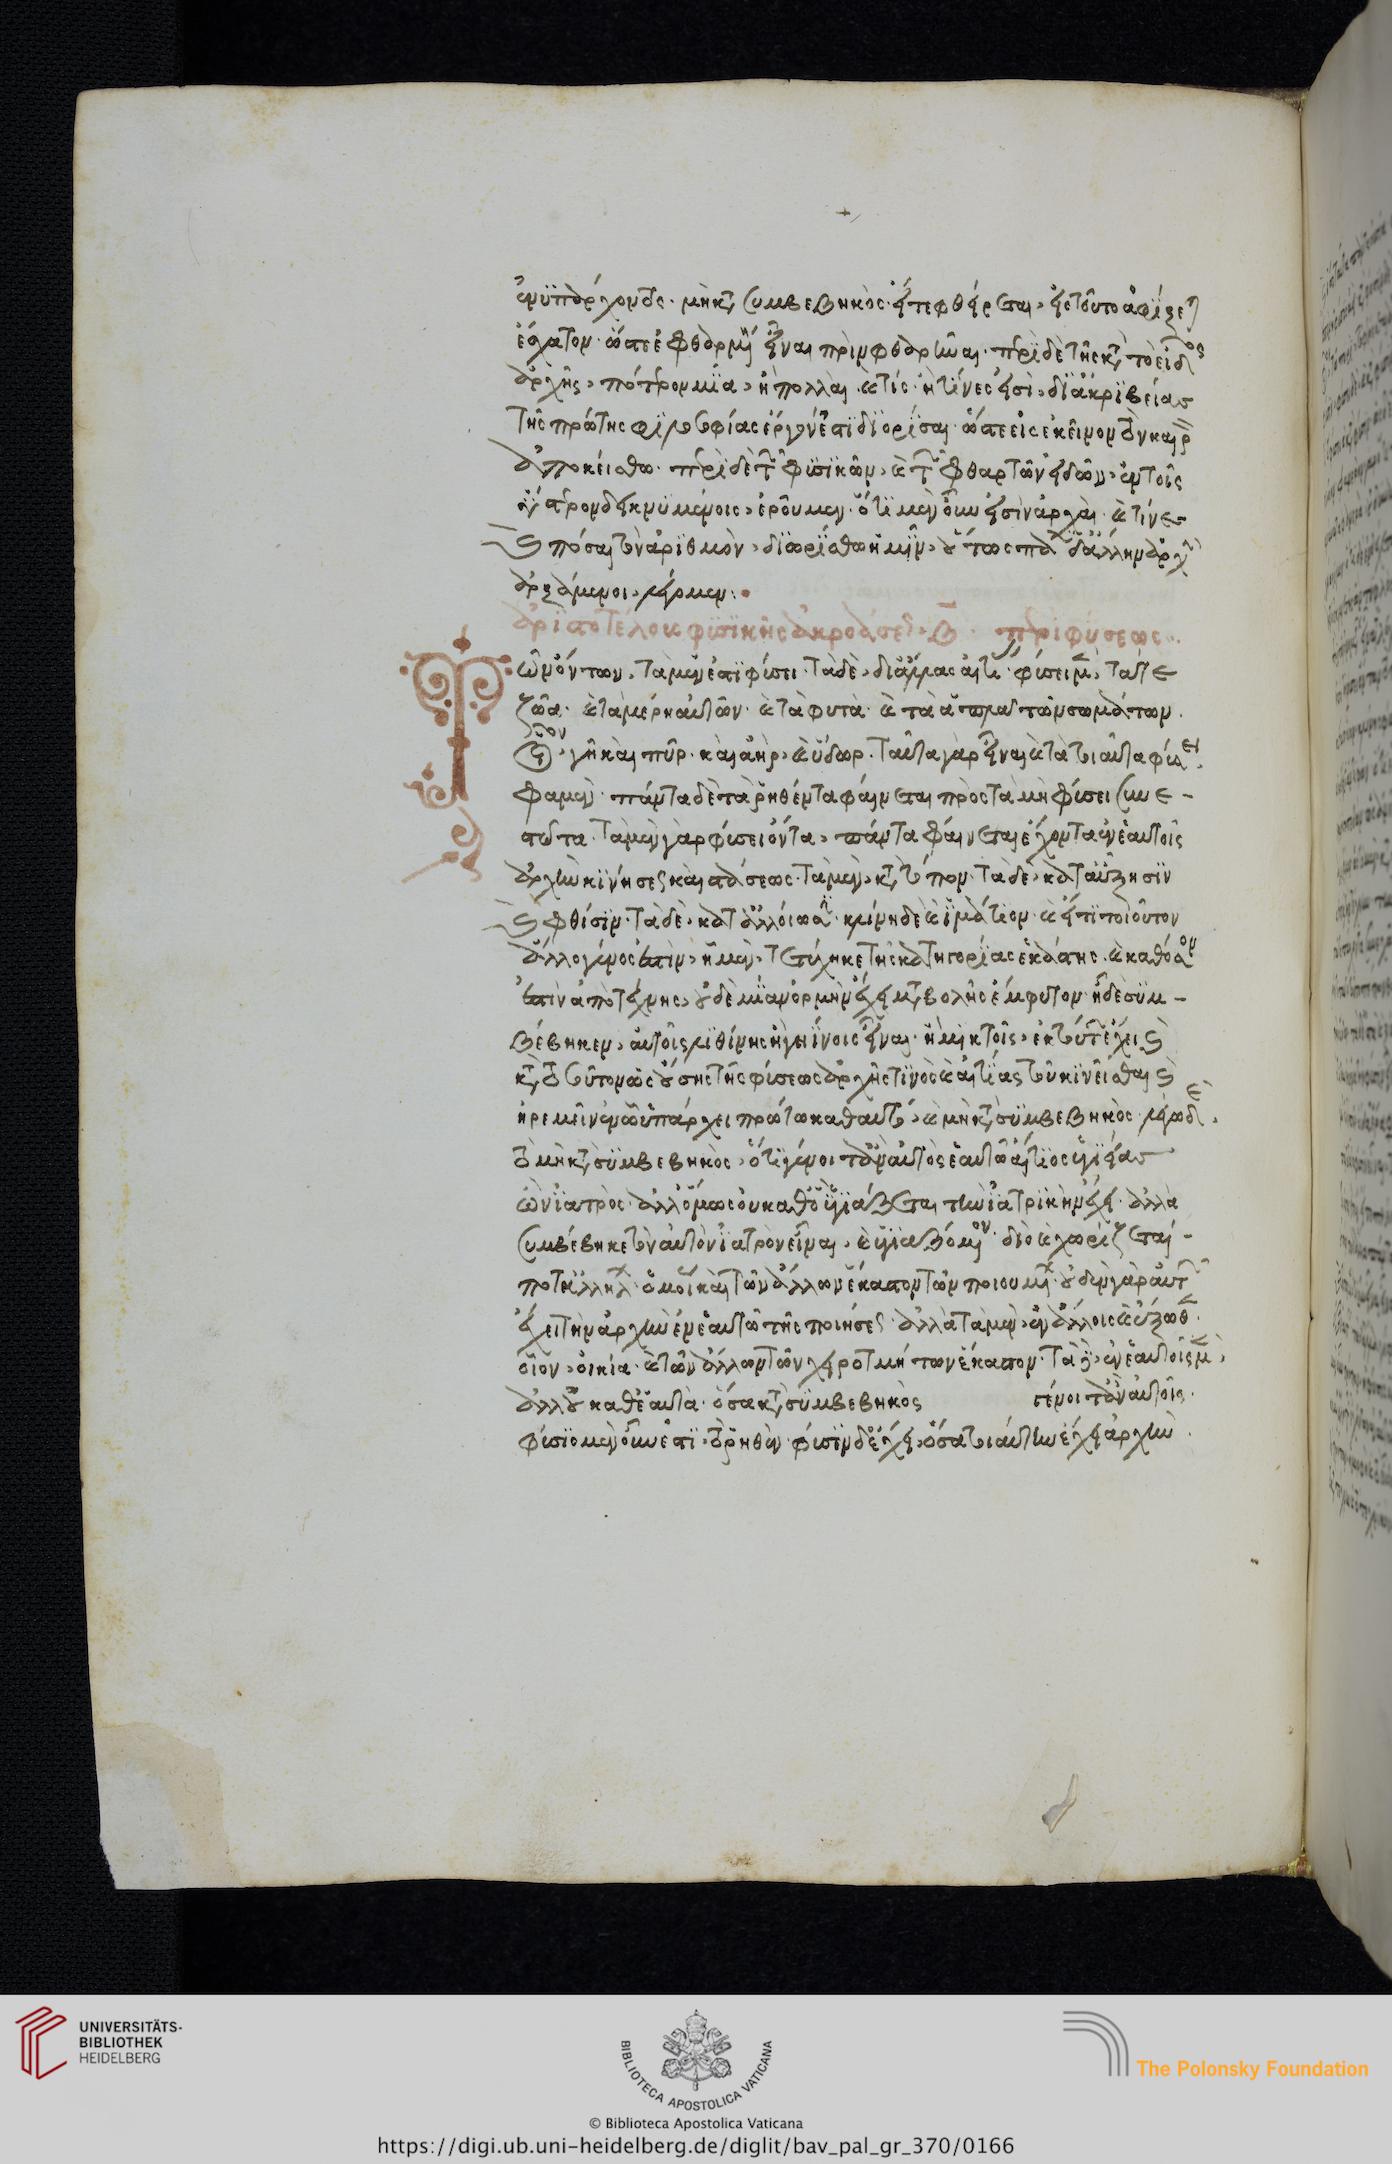 ἐνυπάρχοντος· μὴ κατὰ συμβεβηκός· εἴτε φθείρεται, εἰς τοῦτο ἀφίξεται
ἔσχατον· ὥστε ἐφθαρμένη εἶναι πρὶν φθαρῆναι· περὶ δὲ τῆς κατὰ τὸ εἶδος
ἀρχῆς, πότερον μία, ἢ πολλαὶ καὶ τίς ἢ τίνες εἰσὶ, δι' ἀκριβείας
τῆς πρώτης φιλοσοφίας ἔργον ἐστὶ διορίσαι· ὥστε εἰς ἐκεῖνον τὸν καιρὸν
ἀποκείσθω· περὶ δὲ τῶν φυσικῶν, καὶ τῶν φθαρτῶν εἰδῶν, ἐν τοῖς
ὕστερον δεικνυμένοις, ἐροῦμεν· ὅτι μὲν οὖν εἰσὶν ἀρχαὶ καὶ τίνες
καὶ πόσαι τὸν ἀριθμὸν, διωρίσθω ἡμῖν, οὕτως πάλιν δ' ἄλλην ἀρχὴν
ἀρξάμενοι, λέγομεν:
ἀριστοτέλους φυσικῆς ἀκροάσεως· Β· περὶ φύσεως
Τῶν ὄντων, τὰ μέν ἐστι φύσει· τὰ δὲ, δι' ἄλλας αἰτίας· φύσει μὲν, τά τε
ζῶα· καὶ τὰ μέρη αὐτῶν· καὶ τὰ φυτὰ· καὶ τὰ ἁπλᾶ τῶν σωμάτων·
οἷον, γῆ καὶ πῦρ· καὶ ἀὴρ, καὶ ὕδωρ· ταῦτα γὰρ εἶναι καὶ τὰ τοιαῦτα φύσει
φαμὲν· πάντα δὲ τὰ ῥηθέντα φαίνεται πρὸς τὰ μὴ φύσει συνε-
στῶτα· τὰ μὲν γὰρ φύσει ὄντα, πάντα φαίνεται ἔχοντα ἐν ἑαυτοῖς
ἀρχὴν κινήσεως καὶ στάσεως· τὰ μὲν, κατὰ τόπον· τὰ δὲ, κατ' αὔξησιν
καὶ φθίσιν· τὰ δὲ, κατ' ἀλλοίωσιν· κλίνη δὲ καὶ ἱμάτιον· καὶ εἴ τι τοιοῦτον
ἄλλο γένος ἐστὶν, ᾗ μὲν, τετύχηκε τῆς κατηγορίας ἑκάστης· καὶ καθόσον
ἐστὶν ἀπὸ τέχνης, οὐδεμίαν ὁρμὴν ἔχει μεταβολῆς ἔμφυτον· ᾗ δὲ συμ-
βέβηκεν, αὐτοῖς λιθίνης ἢ γηίνοις εἶναι· ἢ μικτοῖς, ἐκ τούτων ἔχει καὶ
κατὰ τοσοῦτον ὡς οὔσης τῆς φύσεως ἀρχῆς τινὸς καὶ αἰτίας τοῦ κινεῖσθαι καὶ
ἠρεμεῖν ἐν ᾧ ὑπάρχει πρώτω καθ' αὑτὸ, καὶ μὴ κατὰ συμβεβηκός· λέγω δὲ
τὸ μὴ κατὰ συμβεβηκὸς, ὅτι γένοιτ' ἂν αὐτὸς ἑαυτῶ αἴτιος ὑγιείας
ὢν ἰατρός· ἀλλ' ὅμως οὐ καθὸ ὑγιάζεται τὴν ἰατρικὴν ἔχει· ἀλλὰ
συμβέβηκε τὸν αὐτὸν ἰατρὸν εἶναι, καὶ ὑγιαζόμενον· διὸ καὶ χωρίζεται
ποτ' ἀλλήλων· ὁμοίως καὶ τῶν ἄλλων ἕκαστον τῶν ποιουμένων· οὐδὲν γὰρ αὐτῶν
ἔχει τὴν ἀρχὴν ἐν ἑαυτῶ τῆς ποιήσεως· ἀλλὰ τὰ μὲν, ἐν ἄλλοις καὶ ἔξωθεν·
οἷον, οἰκία· καὶ τῶν ἄλλων τῶν χειροτμήτων ἕκαστον· τὰ δ', ἐν ἑαυτοῖς μὲν,
ἀλλ' οὐ καθ' ἑαυτὰ· ὅσα κατὰ συμβεβηκὸς γένοιτ' ἂν αὐτοῖς·
φύσις μὲν οὖν ἐστι, τὸ ῥηθὲν· φύσιν δὲ ἔχει, ὅσα τοιαύτην ἔχει ἀρχὴν·
UNIVERSITÄTS-
BIBLIOTHEK
HEIDELBERG
BIBLIOTECA APOSTOLICA VATICANA
The Polonsky Foundation
© Biblioteca Apostolica Vaticana
https://digi.ub.uni-heidelberg.de/diglit/bav_pal_gr_370/0166